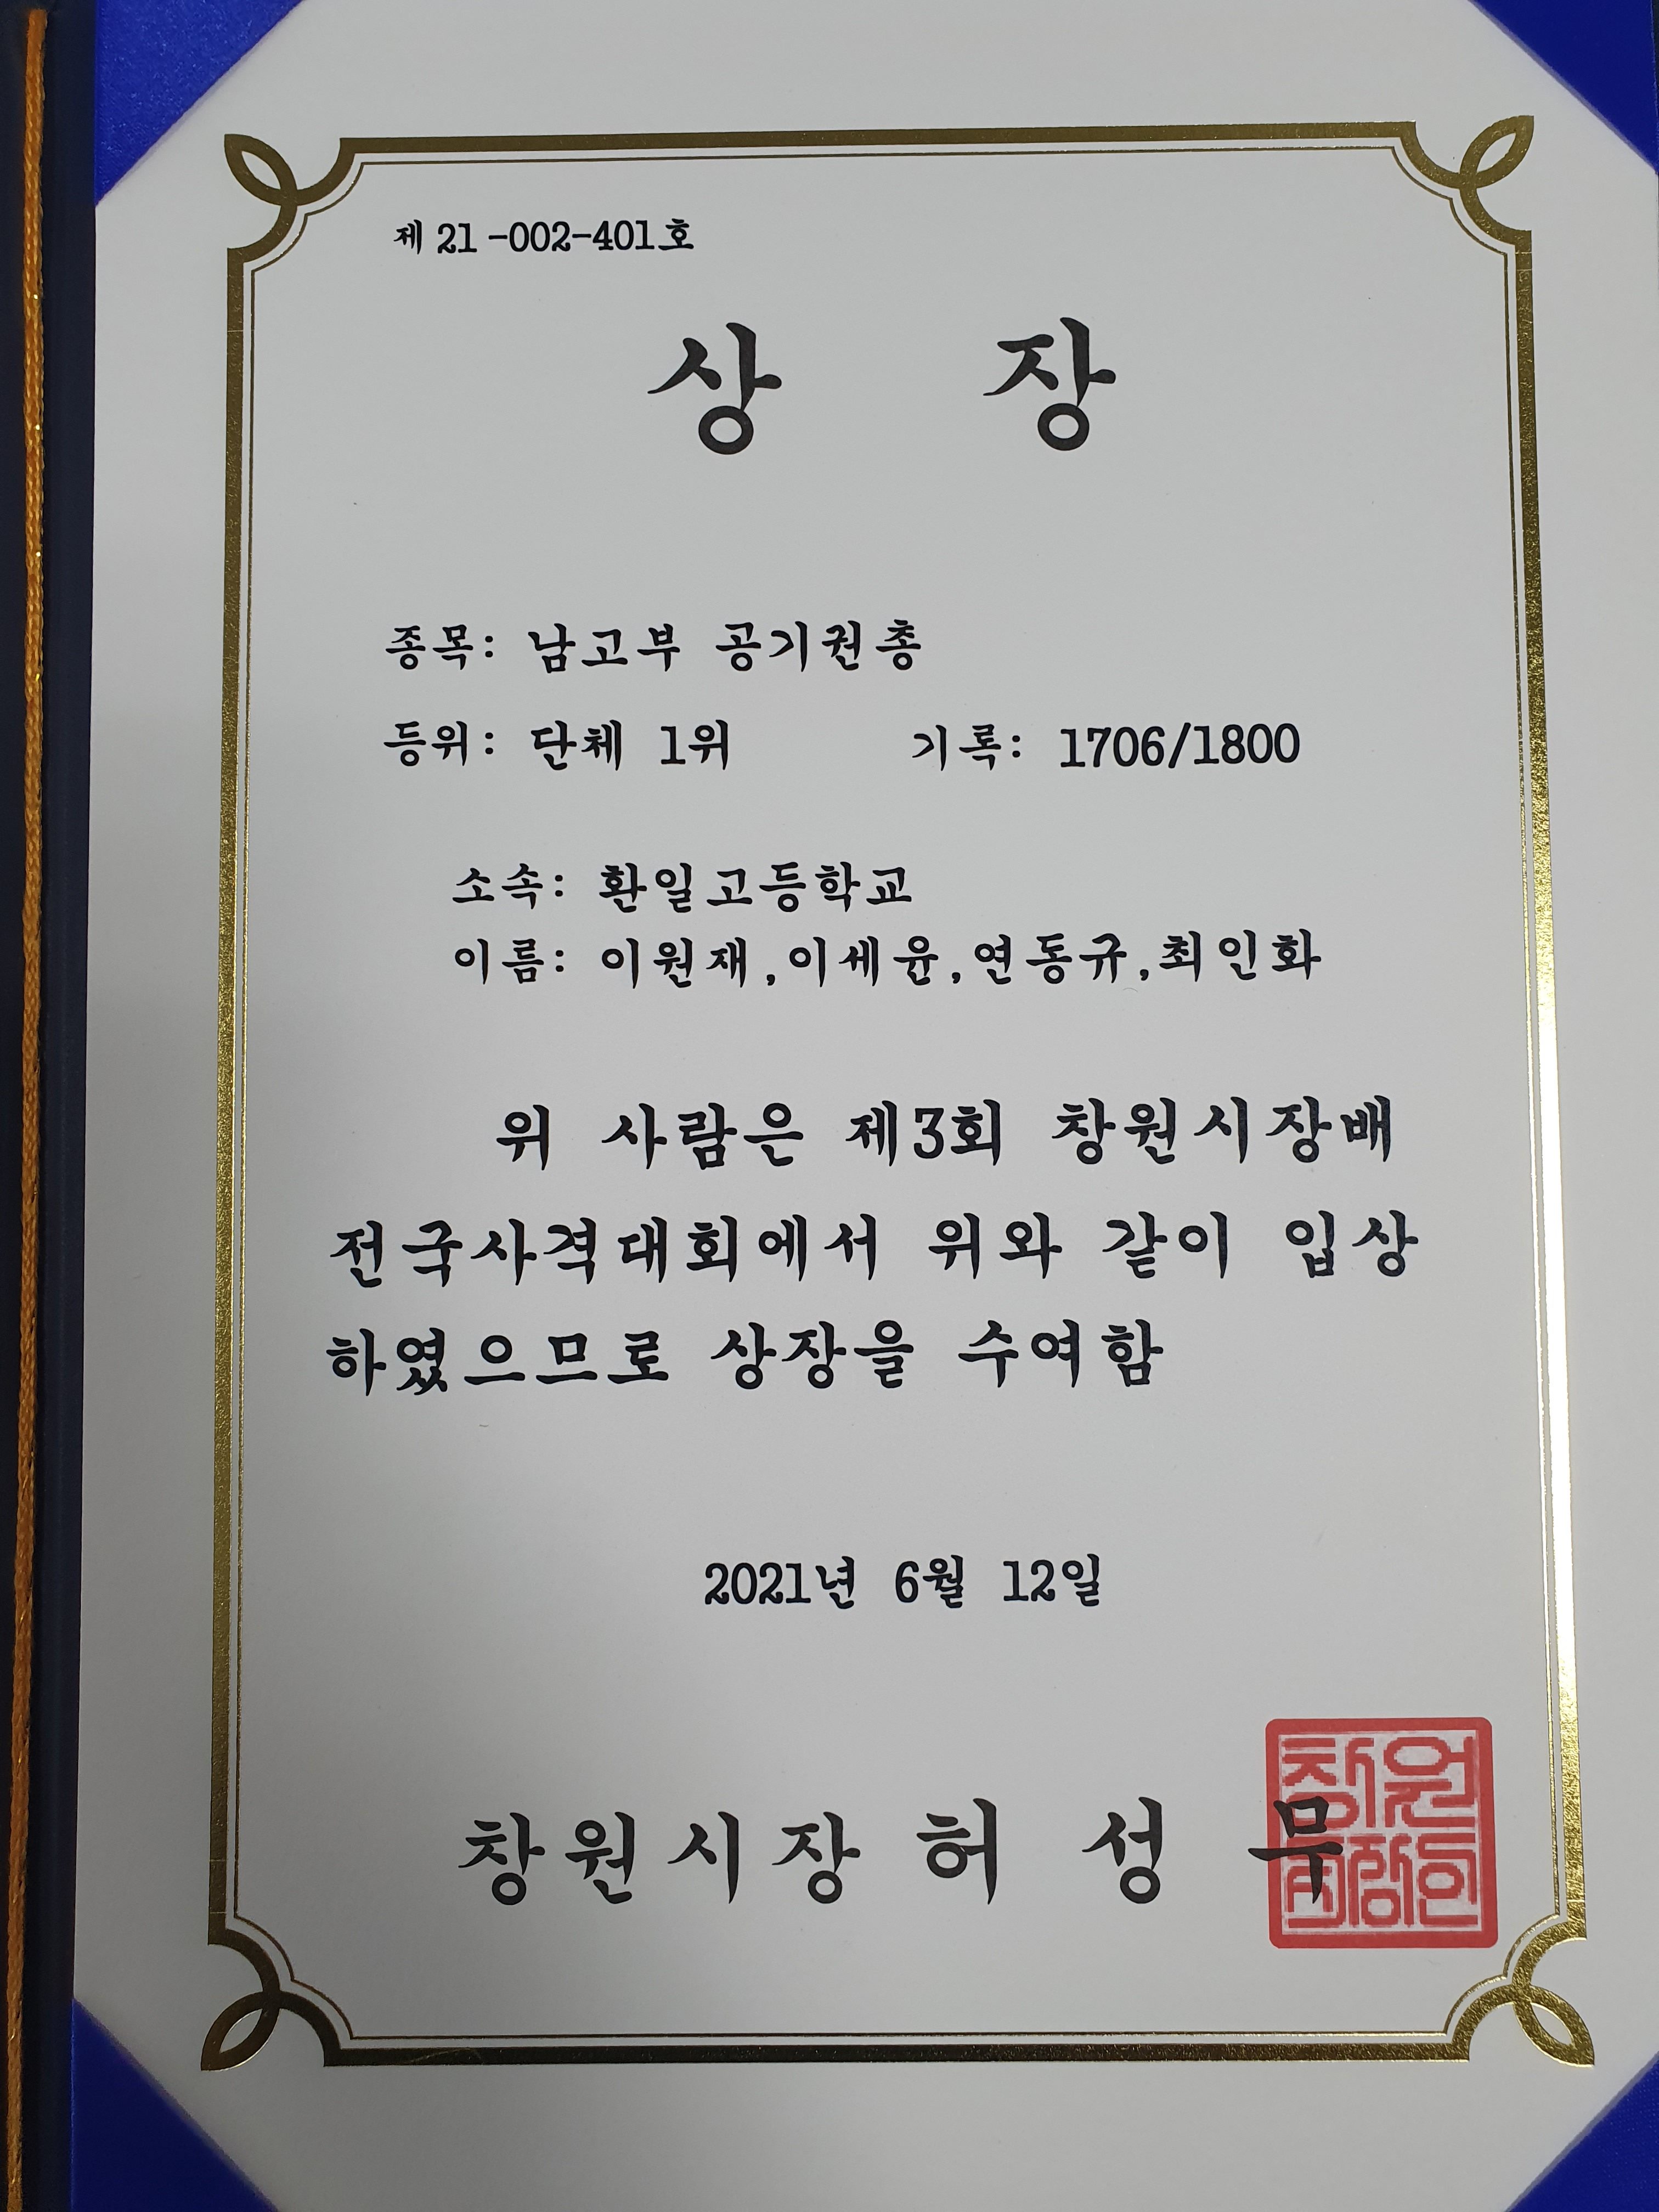 제 21-002-401호
상 장
종목: 남고부 공기권총
등위: 단체 1위 기록: 1706/1800
소속: 환일고등학교
이름: 이원재,이세윤,연동규,최인화
위 사람은 제3회 창원시장배
전국사격대회에서 위와 같이 입상
하였으므로 상장을 수여함
2021년 6월 12일
창원시장 허 성 무
창원
시장인